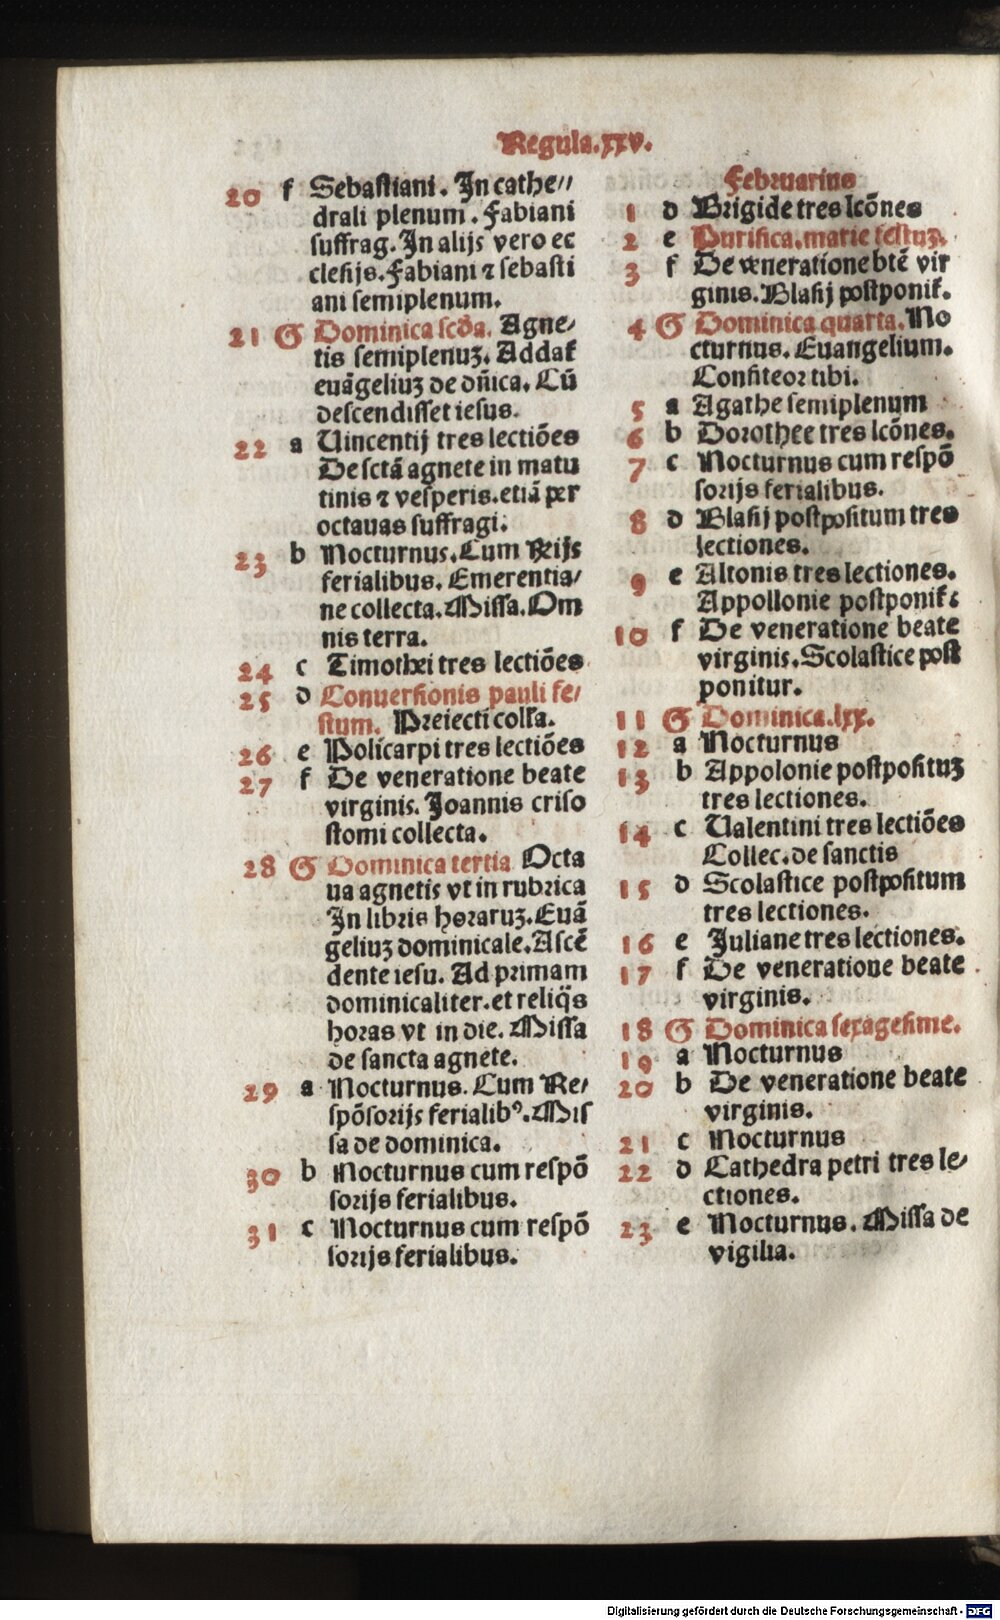 Regula.xxv.
20 f Sebastiani. In cathe//
drali plenum. Fabiani
suffrag. In alijs vero ec
clesijs. Fabiani ⁊ sebasti
ani semiplenum.
21 G Dominica scďa. Agne/
tis semiplenuꝫ. Addať
euāgeliuꝫ de dn̄ica. Cū
descendisset iesus.
22 a Uincentij tres lectiōes
De sctā agnete in matu
tinis ⁊ vesperis. etiā per
octauas suffragi.
23 b Nocturnus. Cum Rijs
ferialibus. Emerentia/
ne collecta. Missa. Om
nis terra.
24 c Timothei tres lectiōes
25 d Conuersionis pauli fe/
stum. Preiecti colľa.
26 e Policarpi tres lectiōes
27 f De veneratione beate
virginis. Joannis criso
stomi collecta.
28 G Dominica tertia Octa
ua agnetis vt in rubrica
In libris horaruꝫ. Euā
geliuꝫ dominicale. Ascē
dente iesu. Ad primam
dominicaliter. et reliq̄s
horas vt in die. Missa
de sancta agnete.
29 a Nocturnus. Cum Re/
spōsorijs ferialibꝰ. Mis
sa de dominica.
30 b Nocturnus cum respō
sorijs ferialibus.
31 c Nocturnus cum respō
sorijs ferialibus.
Februarius
1 d Brigide tres lcōnes
2 e Purifica. marie festuꝫ.
3 f De veneratione btē vir
ginis. Blasij postponiť.
4 G Dominica quarta. No
cturnus. Euangelium.
Confiteor tibi.
5 a Agathe semiplenum
6 b Dorothee tres lcōnes.
7 c Nocturnus cum respō
sorijs ferialibus.
8 d Blasij postpositum tres
lectiones.
9 e Altonis tres lectiones.
Appollonie postponiť:
10 f De veneratione beate
virginis. Scolastice post
ponitur.
11 G Dominica. lxx.
12 a Nocturnus
13 b Appolonie postposituꝫ
tres lectiones.
14 c Ualentini tres lectiōes
Collec. de sanctis
15 d Scolastice postpositum
tres lectiones.
16 e Juliane tres lectiones.
17 f De veneratioue beate
virginis.
18 G Dominica sexagesime.
19 a Nocturnus
20 b De veneratione beate
virginis.
21 c Nocturnus
22 d Cathedra petri tres le/
ctiones.
23 e Nocturnus. Missa de
vigilia.
Digitalisierung gefördert durch die Deutsche Forschungsgemeinschaft - DFG